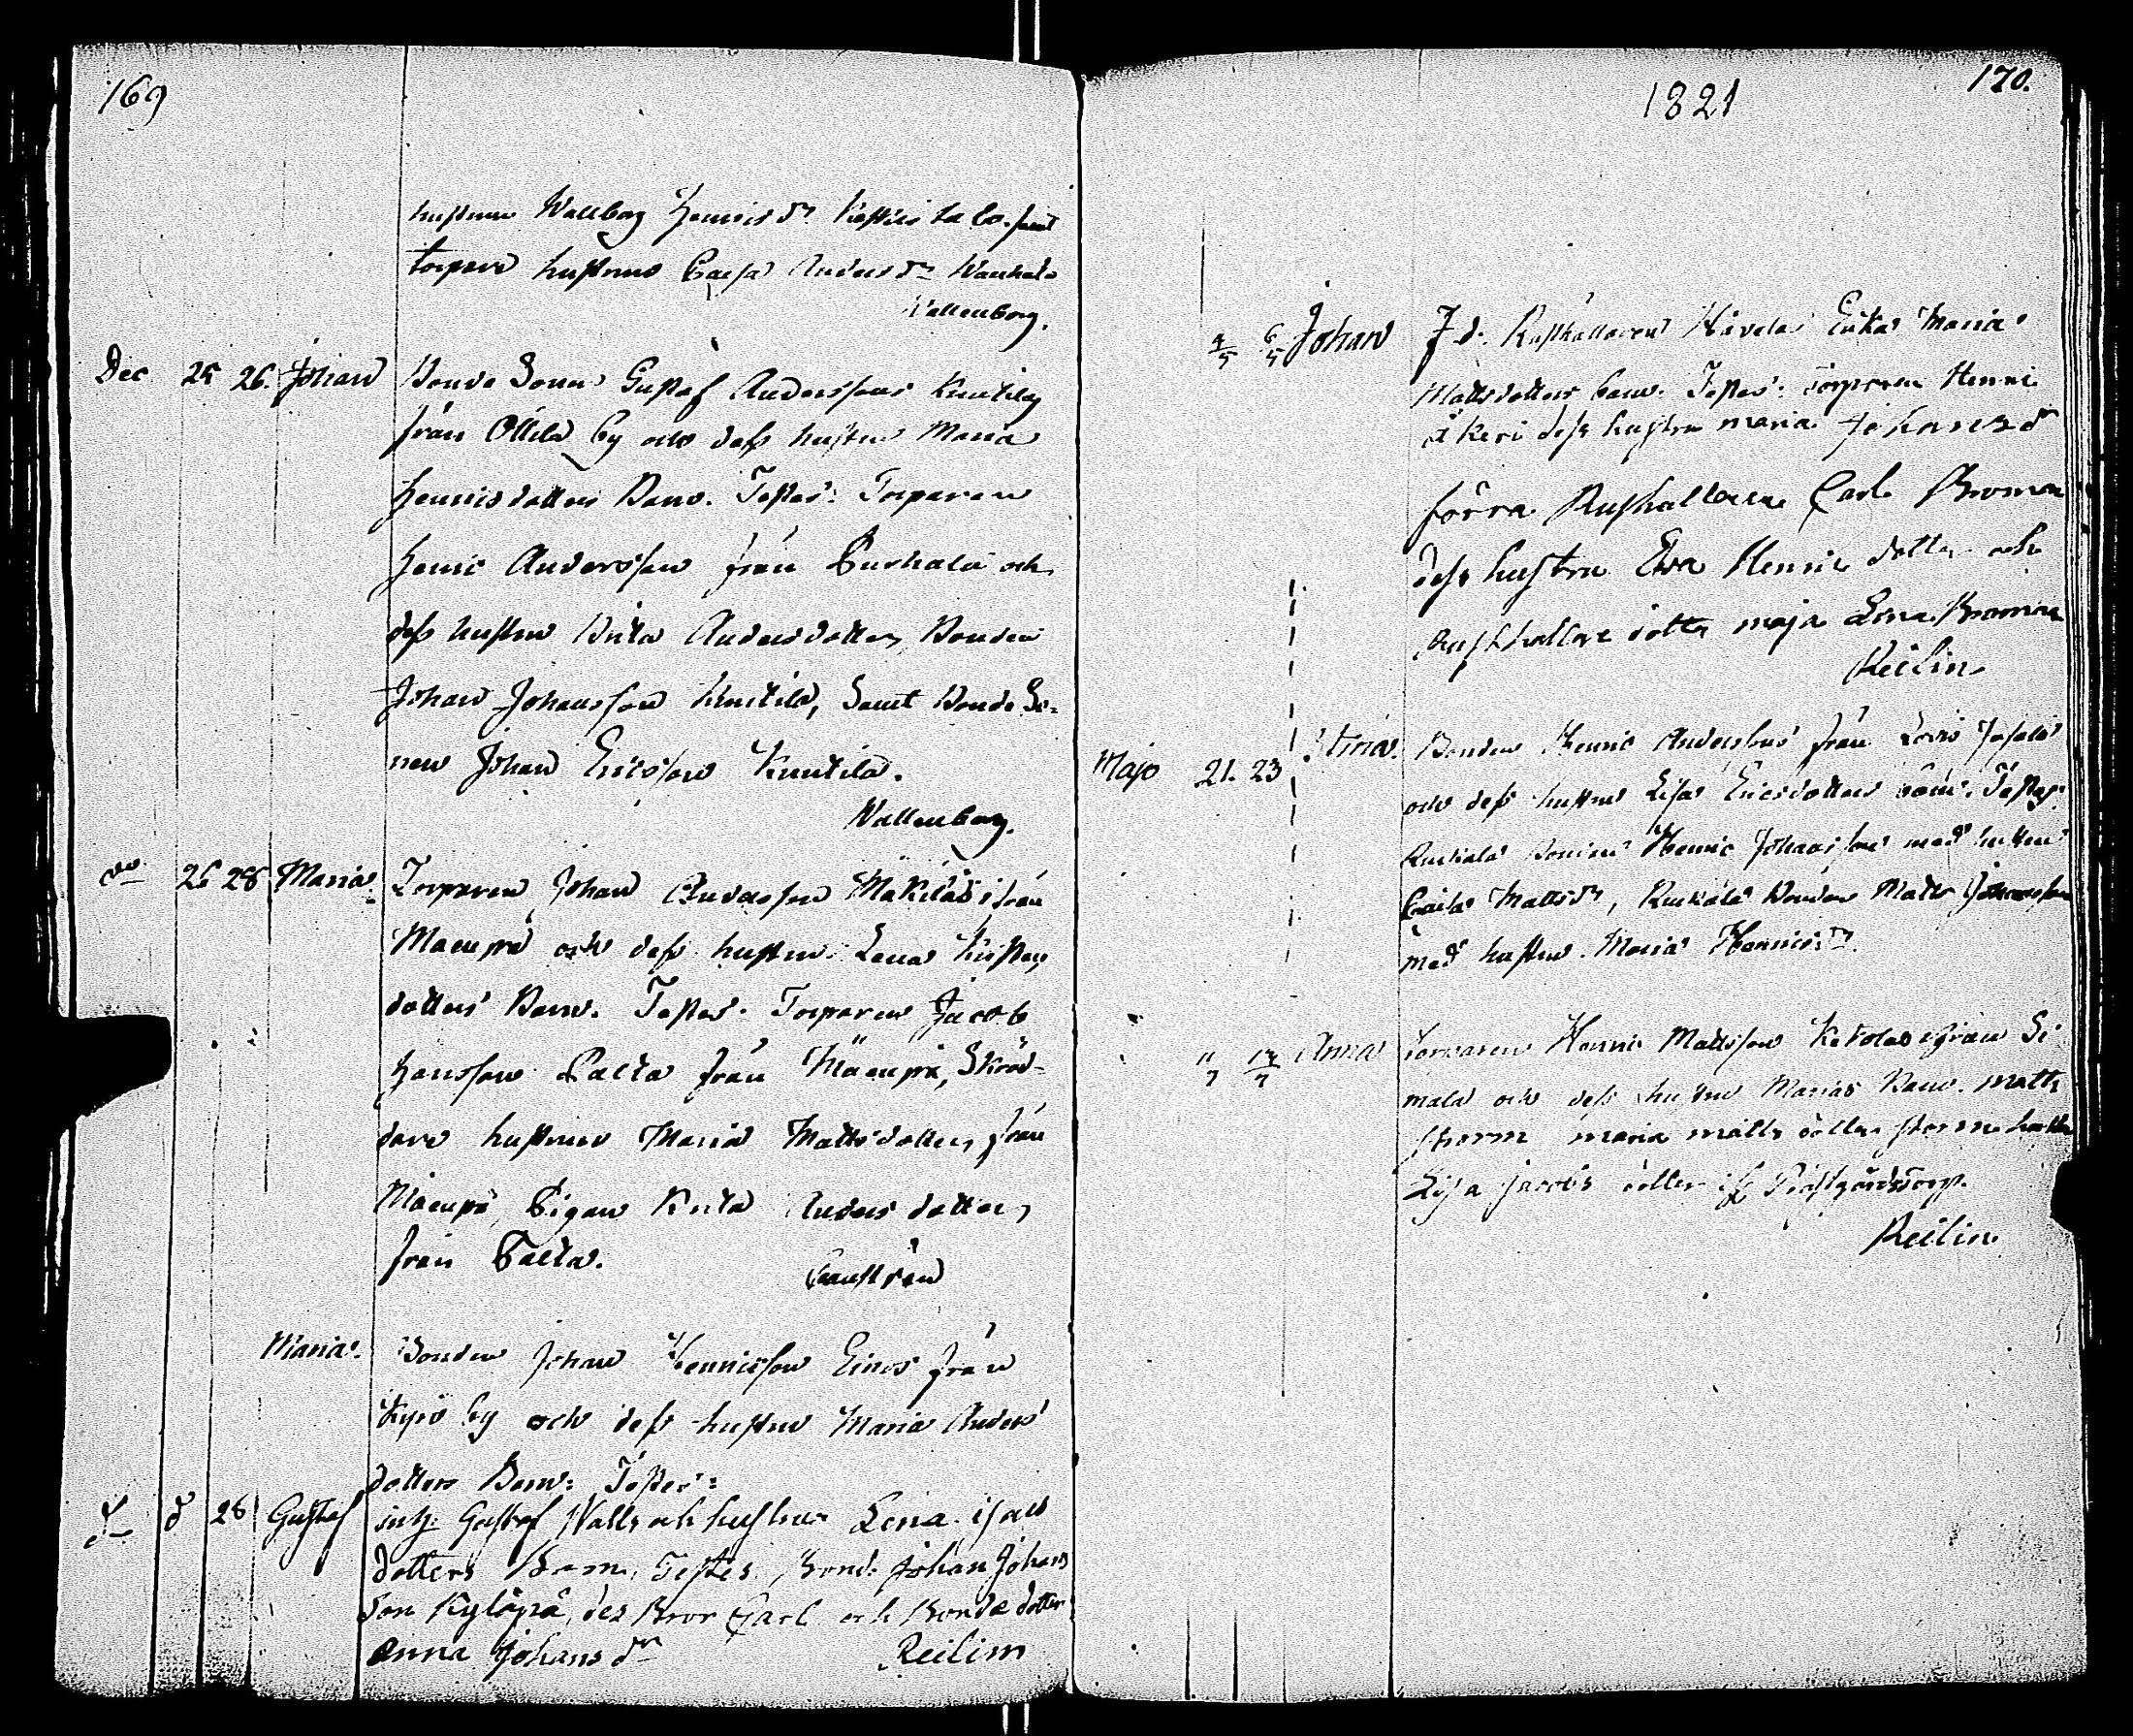 169
hustrun Wallborg Henricsdr Kastari samt
torpare hustrun Caisa Andersdr
Wallenborg.
Dec 25 26. Johan Bonde Sonen Gustaf Anderssons Knutila
från Ollila by och dess hustru Maria
Henricsdotters Barn. Testes: Torparen
Henric Andersson från Purhala och
dess hustru Brita Andersdotter, Bonden
Johan Johansson Knutila, Samt Bonde So-
nen Johan Ericsson Knutila.
Wallenborg.
do 26 28 Maria. Torparen Johan Andersson Mäkiläs ifrån
Mäenpä och dess hustru Lena
dotters Barn. Testes. Torparen Jacob
Hansson Palta från Mäenpä, Skräd-
dare hustrun Maria Mattsdotter, från
Mäenpä, Pigan Brita Andersdotter,
från Palta.
Maria. Bonden Johan Henricsson Einos från
Kyrö by och dess hustru Maria Anders
dotters Barn: Testes:
d d 28 Gustaf Gustaf Walls och hustrun Lena isacs
dotters Barn, Testes, Bond. Johan Johans
son Kyläpä, des Bror Carl och Bonde dotter
Anna Johansdr Reilin
1821
170.
4/5 6/5 Johan F.d. Rusthållaren Erika Maria
Mattsdotters barn. Testes: Torparen Henric
äkeri dess hustru maria Johansdr
förra Rusthållaren Carl Broman
dess hustru Eva Henricsdotter och
Rusthållare dotter maja Lena Broman
Reilin
Majo 21. 23 Stina. Bonden Henric Anderssons från
och dess hustru Lisa Ericsdotters barn. Testes:
Bonden Henric Johansson med hustru
Caisa Mattsdr, Bonden Matts Johansson
med hustru Maria Henricsdr.
11/7 12/7 Anna Torparen Henric Mattsson Ketolas ifrån Si
mala och dess hustru Marias Barn. matts
storm maria matts dotter storm
Lisa jacobs dotter if Prästgårdstorp.
Reilin